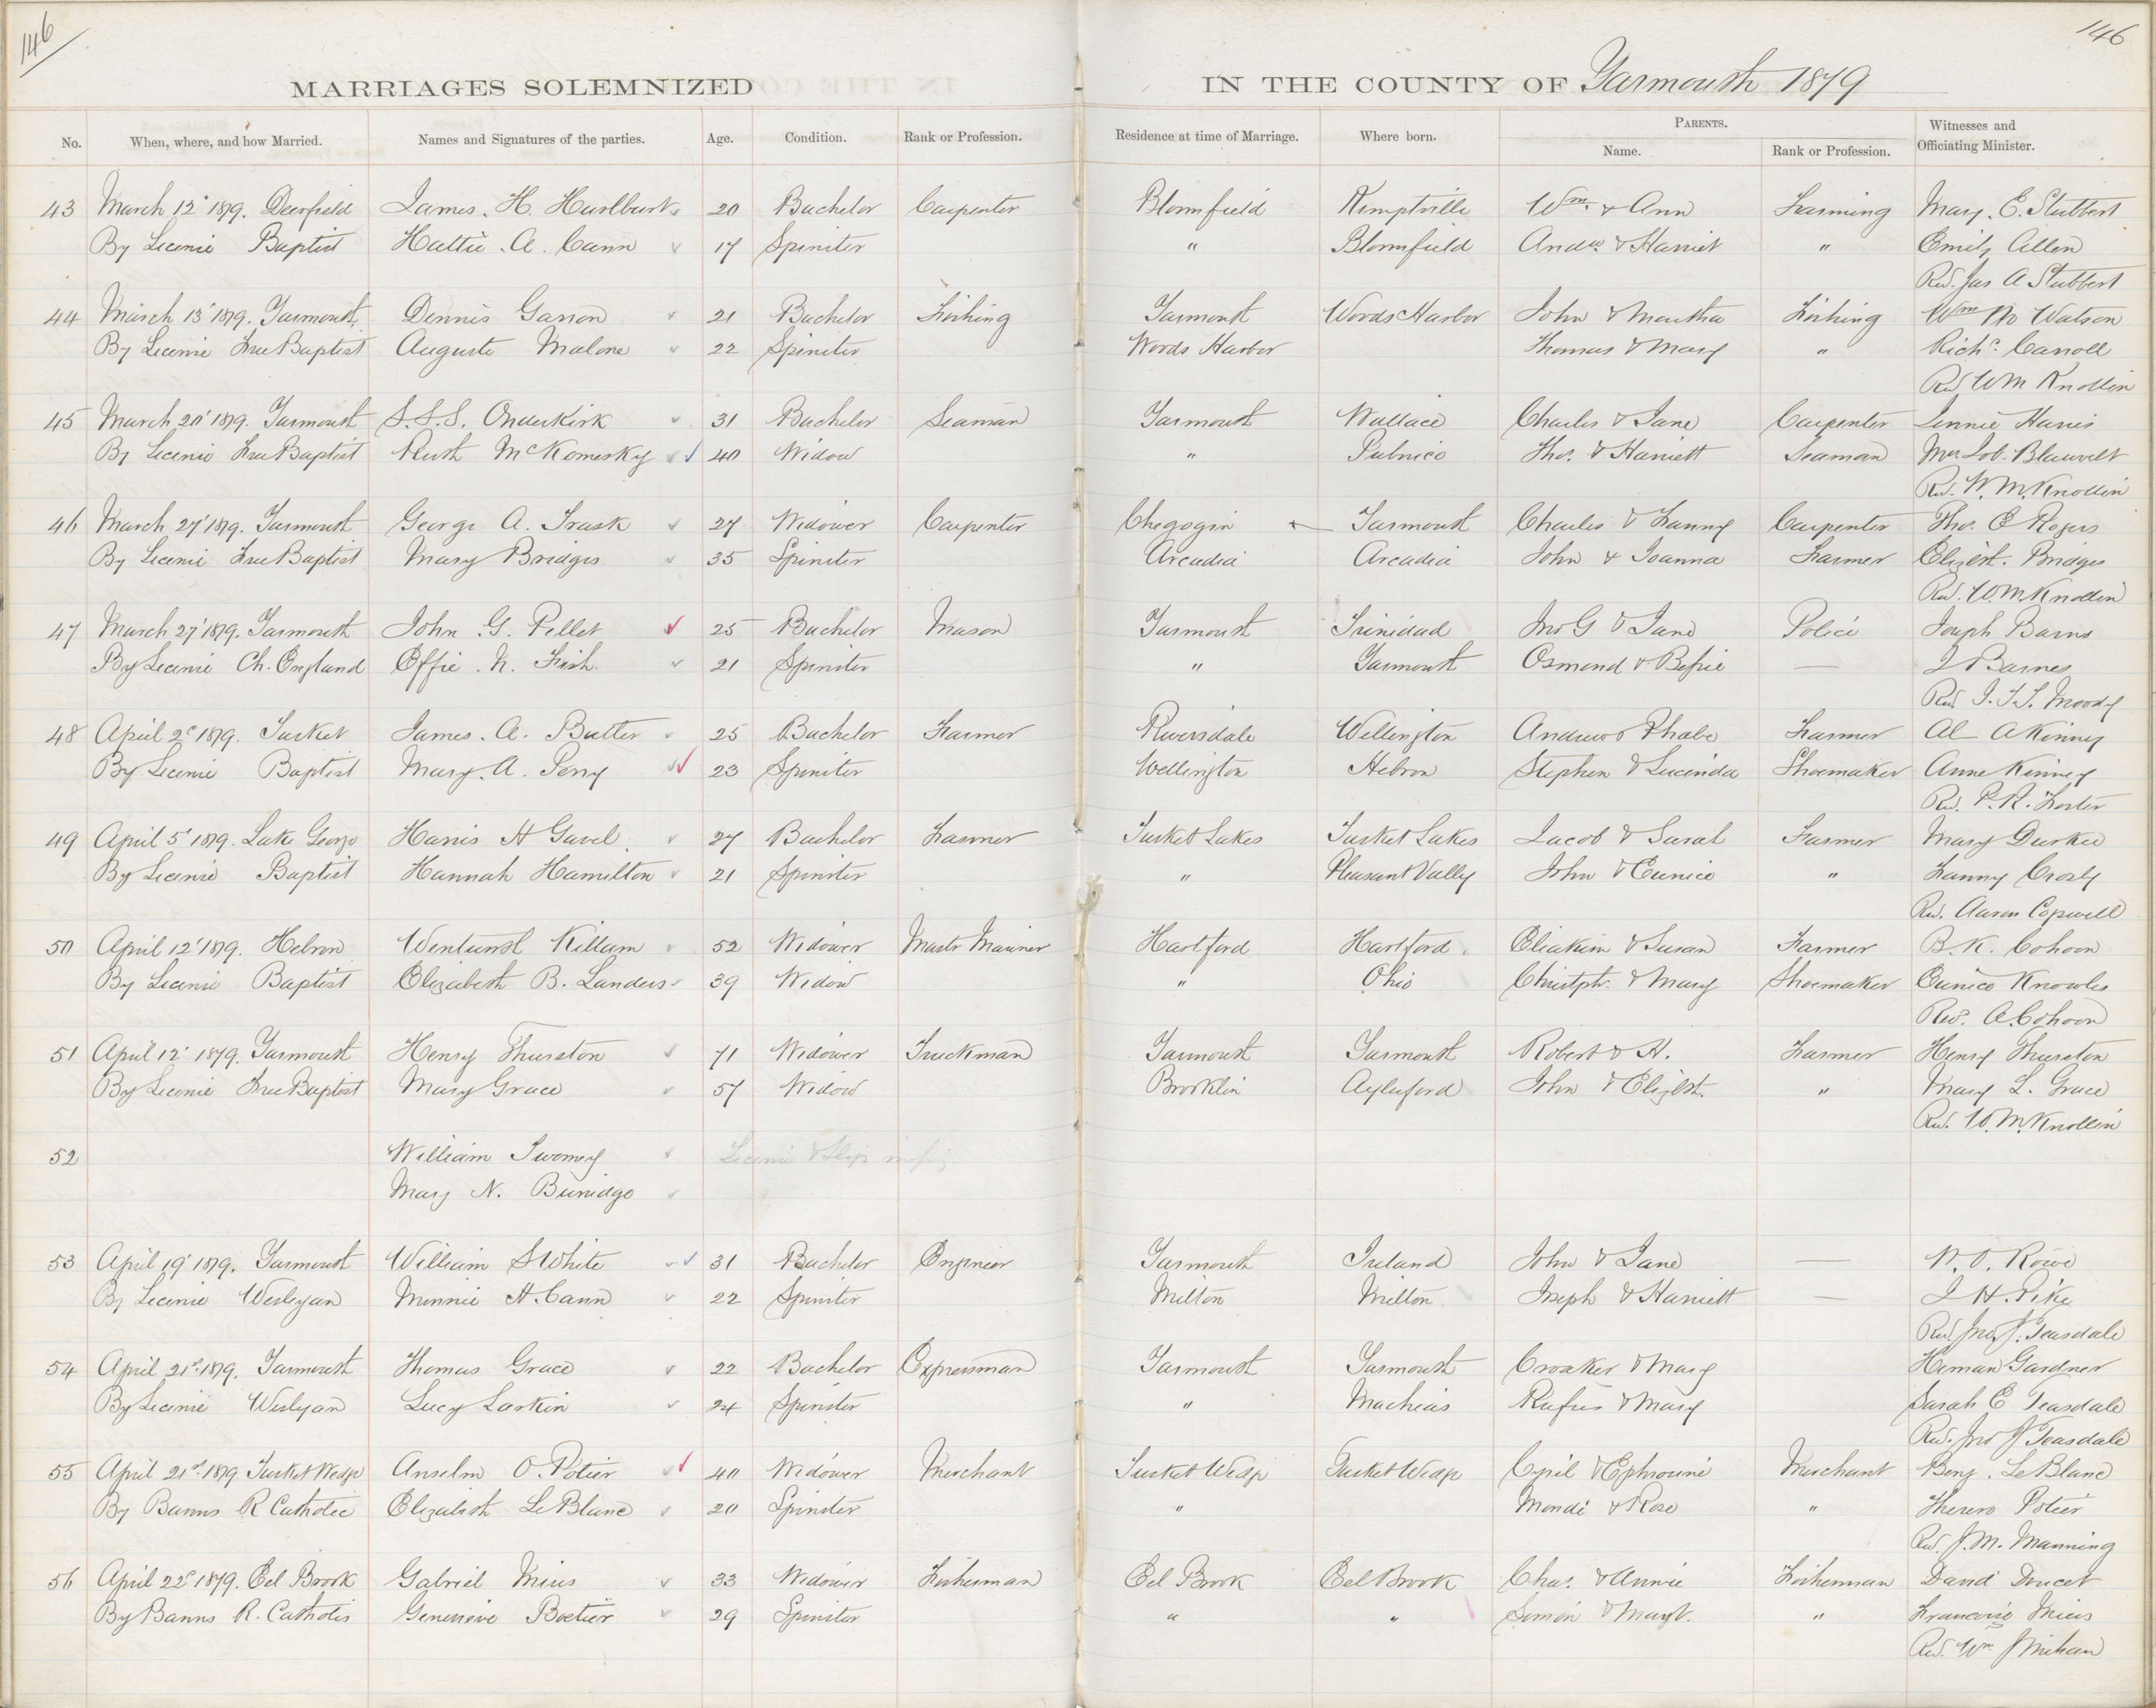 146
146
MARRIAGES SOLEMNIZED IN THE COUNTY OF Yarmouth 1879
No. When, where, and how Married. Names and Signatures of the parties. Age. Condition. Rank or Profession. Residence at time of Marriage. Where born. PARENTS. Name. Rank or Profession. Witnesses and Officiating Minister.
43 March 12' 1879. Deerfield James. H. Hurlburt 20 Bachelor Carpenter Bloomfield Kemptville Wm. & Ann Farming Mary. E. Stubbert
By License Baptist Hattie. A. Cann 17 Spinster " Bloomfield Andw. & Harriet " Emily Allen
Rev. Jas A Stubbert
44 March 13' 1879. Yarmouth Dennis Garron 21 Bachelor Fishing Yarmouth Woods Harbor John & Martha Fishing Wm Watson
By License Free Baptist Augusta Malone 22 Spinster Woods Harbor Thomas & Mary " Richd. Carroll
Rev W M Knollin
45 March 20' 1879. Yarmouth S.S.S. Onderkirk 31 Bachelor Seaman Yarmouth Wallace Charles & Jane Carpenter Lennie Harris
By License Free Baptist Ruth McKomesky 40 Widow " Pubnico Thos. & Harriett Seaman Mrs Job. Blauvelt
Rev. W. M. Knollin
46 March 27' 1879. Yarmouth George A. Trask 27 Widower Carpenter Chegogin Yarmouth Charles & Fanny Carpenter Thos. E Rogers
By License Free Baptist Mary Bridges 35 Spinster Arcadia Arcadia John & Joanna Farmer Elizbt. Bridges
Rev. W. M. Knollin
47 March 27' 1879. Yarmouth John. G. Pellet 25 Bachelor Mason Yarmouth Trinidad Jno G & Jane Police Joseph Barns
By License Ch. England Effie. N. Fish. 21 Spinster " Yarmouth Osmond & Bessie — J Barnes
Rev J. T. T. Moody
48 April 2d 1879. Tusket James. A. Butler 25 Bachelor Farmer Riversdale Wellington Andrew & Phabe Farmer Al A Kinney
By License Baptist Mary. A. Perry 23 Spinster Wellington Hebron Stephen & Lucinda Shoemaker Anne Kinney
Rev. P. R. Foster
49 April 5' 1879. Lake George Harris H Gavel. 27 Bachelor Farmer Tusket Lakes Tusket Lakes Jacob & Sarah Farmer Mary Durkee
By License Baptist Hannah Hamilton 21 Spinster " Pleasant Vally John & Eunice " Fanny Crosby
Rev. Aaron Cogswell
50 April 12' 1879. Hebron Wentworth Killam 52 Widower Mastr Mariner Hartford Hartford. Eliakim & Susan Farmer B. K. Cohoon
By License Baptist Elizabeth B. Landers 39 Widow " Ohio Christphr. & Mary Shoemaker Eunice Knowles
Rev. A. Cohoon
51 April 12' 1879. Yarmouth Henry Thurston 71 Widower Truckman Yarmouth Yarmouth Robert & H. Farmer Henry Thurston
By License Free Baptist Mary Grace 57 Widow Brooklin Aylesford John & Elizbth. " Mary L. Grace
Rev. W. M. Knollin
52 William Swomey License & Slip
Mary N. Bunidge
53 April 19' 1879. Yarmouth William S White 31 Bachelor Engineer Yarmouth Ireland John & Jane — N. O. Rowe
By License Wesleyan Minnie H. Cann 22 Spinster Milton Milton Joseph & Harriett — J H. Pike
Rev. Jno. J. Teasdale
54 April 21st. 1879. Yarmouth Thomas Grace 22 Bachelor Expressman Yarmouth Yarmouth Croaker & Mary Heman Gardner
By License Weslyan Lucy Larkin 24 Spinster " Machias Rufus & Mary Sarah E Teasdale
Rev. Jno J Teasdale
55 April 21st. 1879 Tusket Wedge Anselm O. Potier 40 Widower Merchant Tusket Wedge Tusket Wedge Cyril & Ephrosine Merchant Benj. LeBlanc
By Banns R Catholic Elizabeth LeBlanc 20 Spinster " Mondi & Rose " Potier
Rev. J. M. Manning
56 April 22d 1879. Eel Brook Gabriel Mius 33 Widower Fisherman Eel Brook Eel Brook Chas. & Annie Fisherman David Doucet
By Banns R. Catholic Genevieve Boetier 29 Spinster " " Simon & Mary. " Mius
Rev. Wm